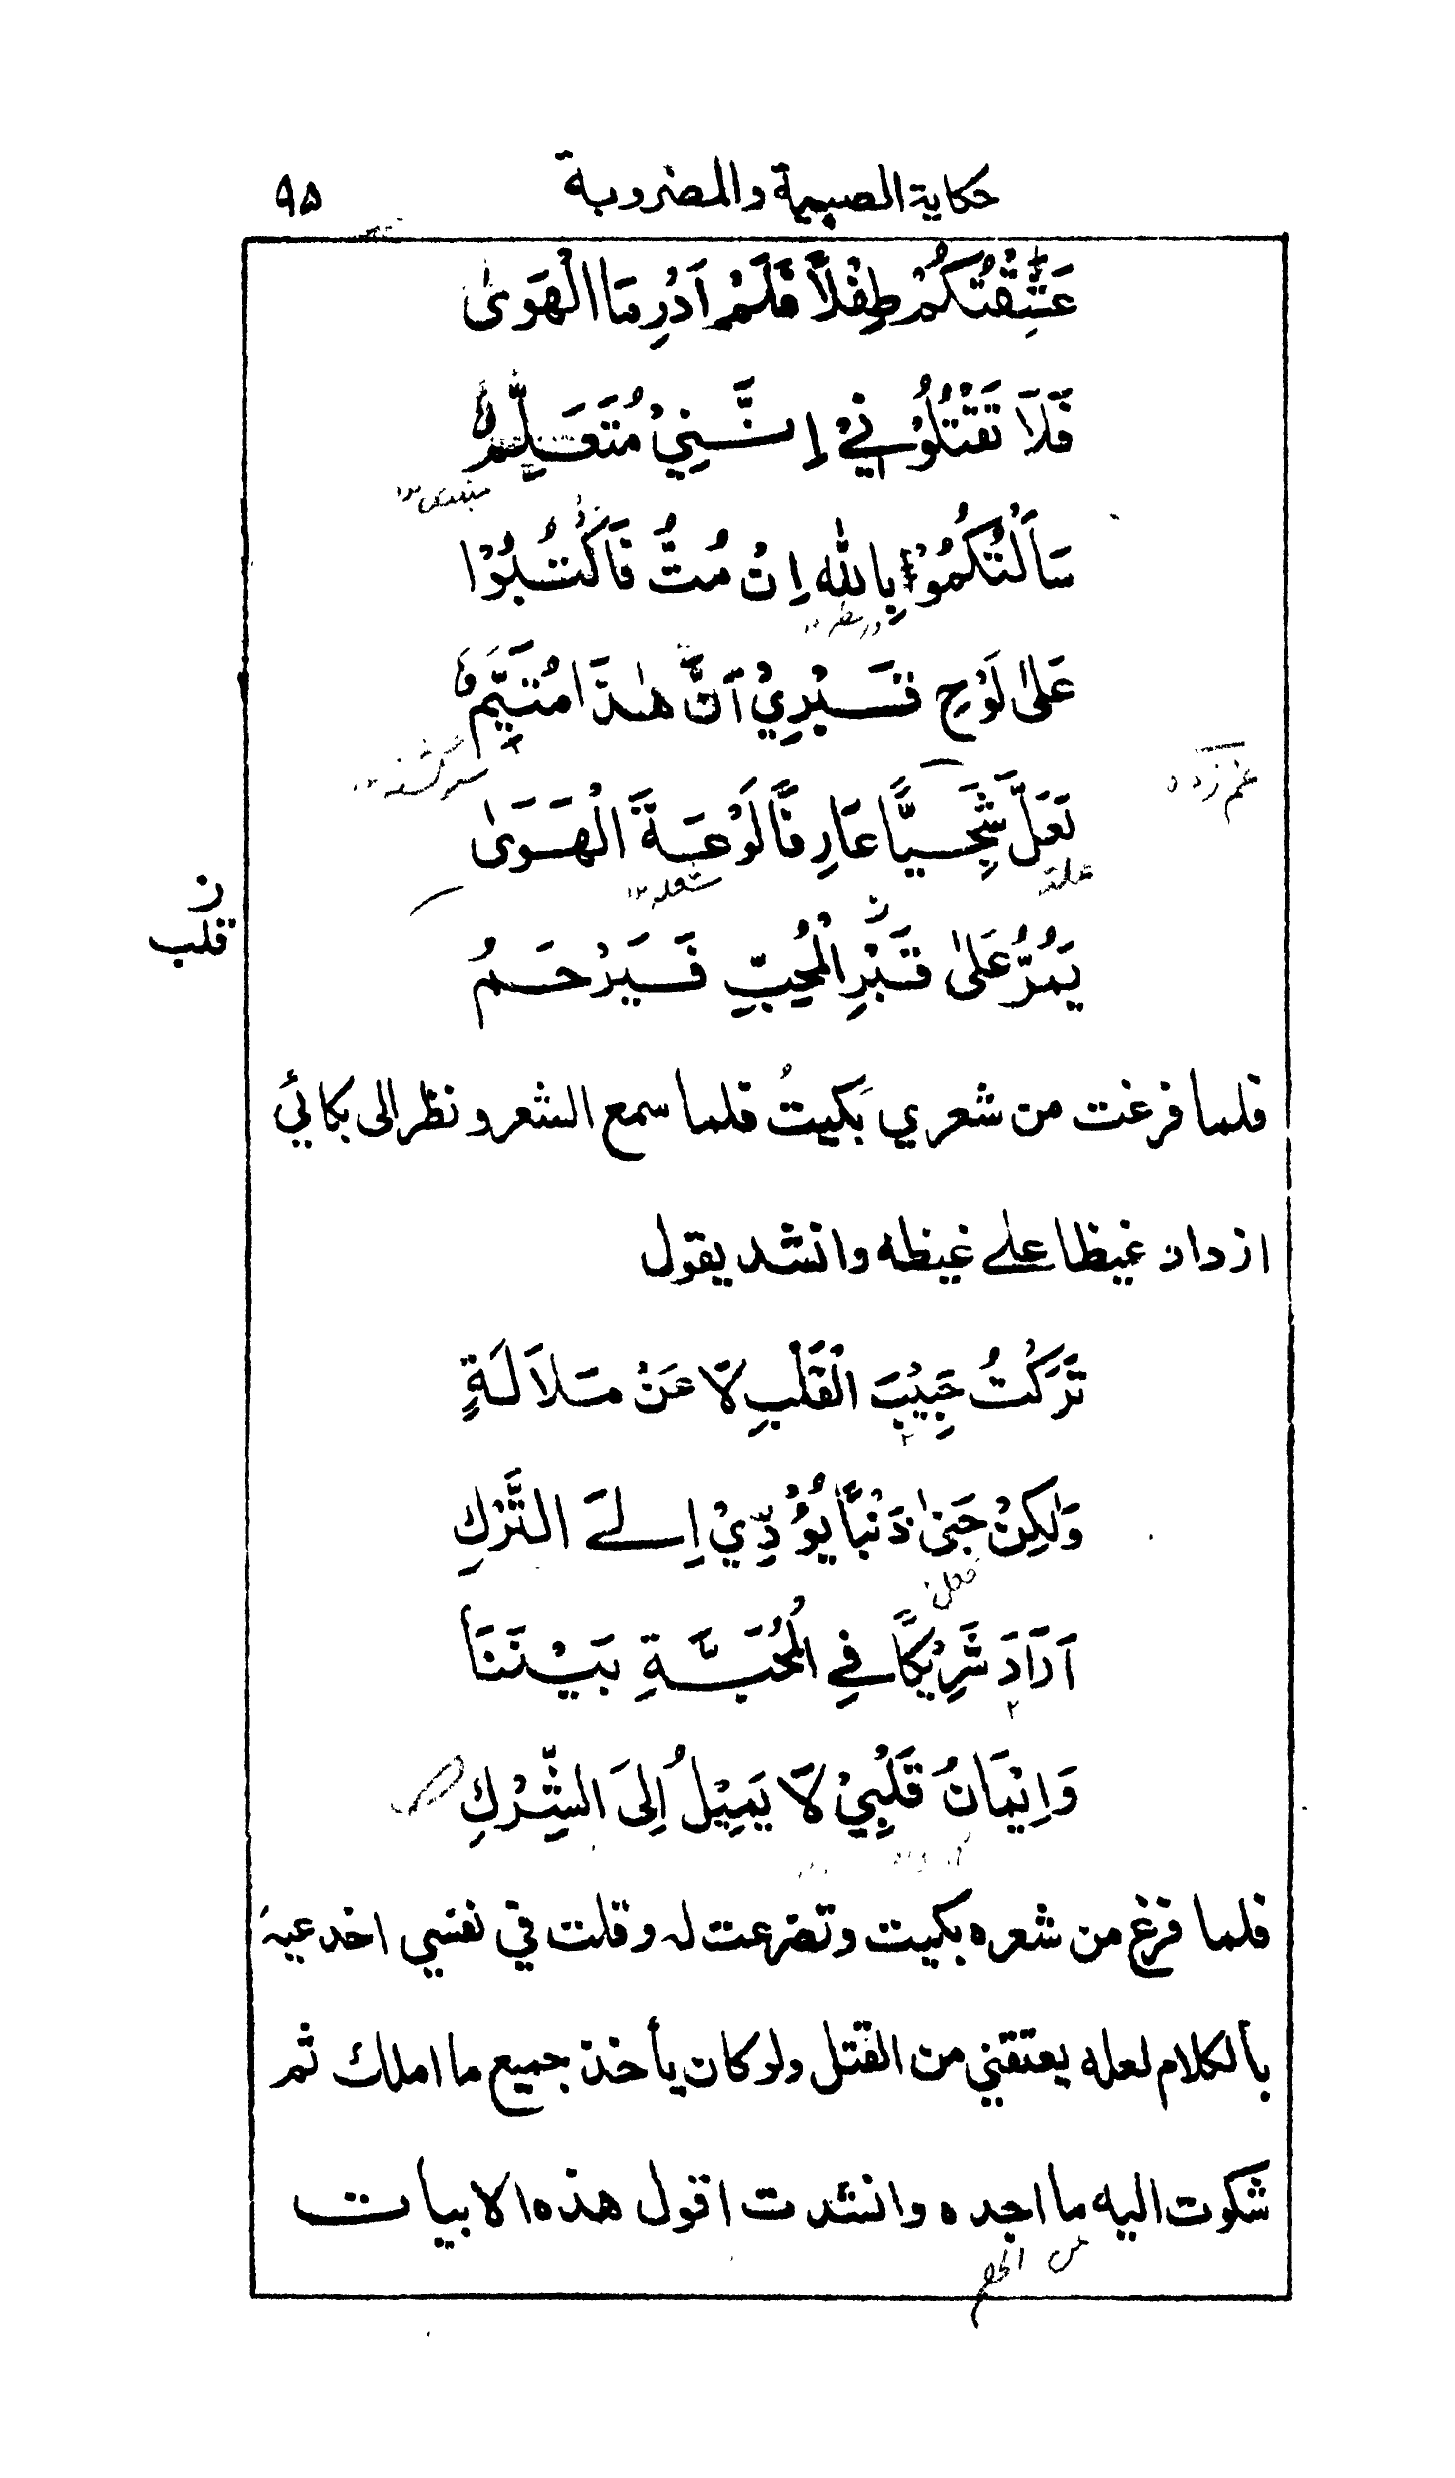 حكاية الصبيبة والمضروبة ٩٥
عَشِقْتُكُمْ طِفْلاً فَلَمْ اَدْرِ مَا الْهَوٰى
فَلَا تَقْتُلُوْنِيْ اِنَّنِيْ مُتَعَلِّمٌ
مبتدى ١٢
سَأَلْتُكُمُوْا بِاللهِ اِنْ مُتُّ فَاكْتُبُوْا
عَلىٰ لَوْحِ قَبْرِيْ اَنَّ هٰذَا مُتَيَّمٌ
سرگشته ١٢
غم زده
لَعَلَّ شَجِيًّا عَارِفًا لَوْعَةَ الْهَوٰى
شعله ١٢
يَمُرُّ عَلىٰ قَبْرِ الْمُحِبِّ فَيَرْحَمُ
ن
قلب
فلما فرغت من شعري بَكيتُ فلما سمع الشعر و نظر الى بكائي
ازداد غيظا علے غيظه وانشد يقول
تَرَكْتُ حَبِيْبَ الْقَلْبِ لَا عَنْ مَلَالَةٍ
وَلٰكِنْ جَنىٰ ذَنْبًا يُؤَدِّيْ اِلَے التَّرْكِ
اَرَادَ شَرِيْكًا فِي الْمُحَبَّةِ بَيْنَنَا
وَاِيْمَانُ قَلْبِيْ لَا يَمِيْلُ اِلىَ الشِّرْكِ
فلما فرغ من شعره بكيت وتضرعت له وقلت في نفسي اخدعيه
بالكلام لعله يعتقني من القتل ولو كان يأخذ جميع ما املك ثم
شكوت اليه ما اجده وانشدت اقول هذه الابيات